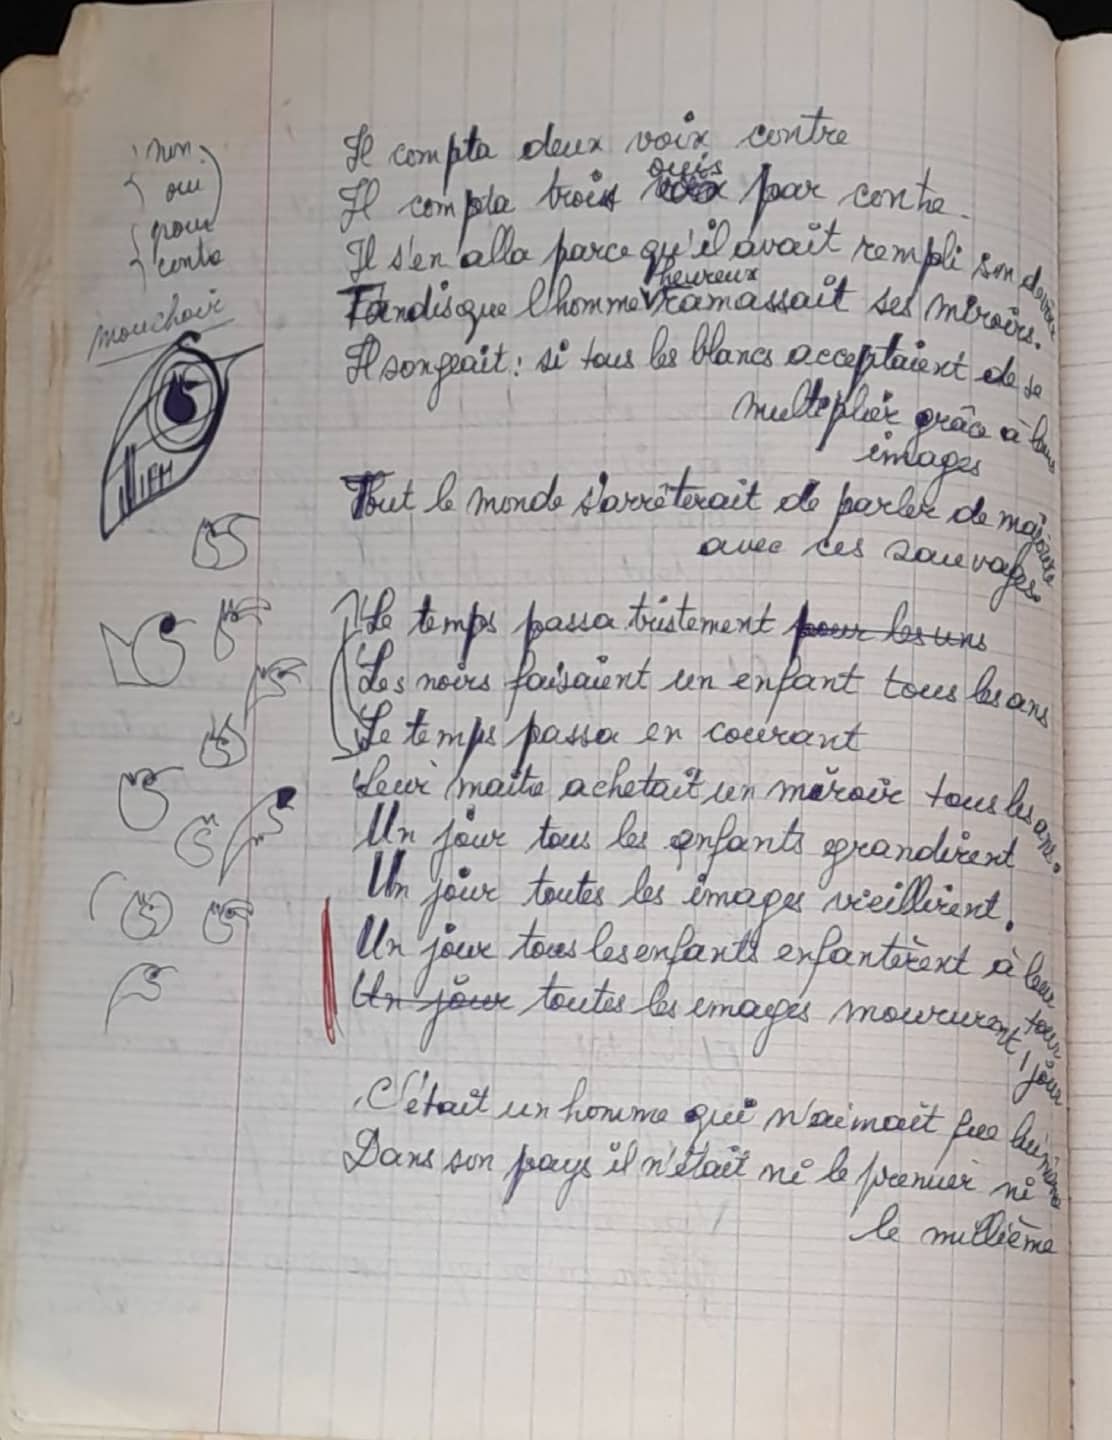 non
oui
pour
contre
mouchoir
Il compta deux voix contre
ouis
Il compta trois voix par contre.
Il s'en alla parce qu'il avait rempli son devoir
heureux
Tandis que l'homme ramassait ses miroirs.
Il songeait : si tous les blancs acceptaient de se
multiplier grâce à leurs
images
Tout le monde s'arrêterait de parler de majorité
avec ces sauvages.
Le temps passa tristement pour les uns
Les noirs faisaient un enfant tous les ans
Le temps passa en courant
Leur maître achetait un miroir tous les ans.
Un jour tous les enfants grandirent
Un jour toutes les images vieillirent.
Un jour tous les enfants enfantèrent à leur tour
Un jour toutes les images moururent 1 jour
C'était un homme qui n'aimait que lui même
Dans son pays il n'était ni le premier ni
le millième